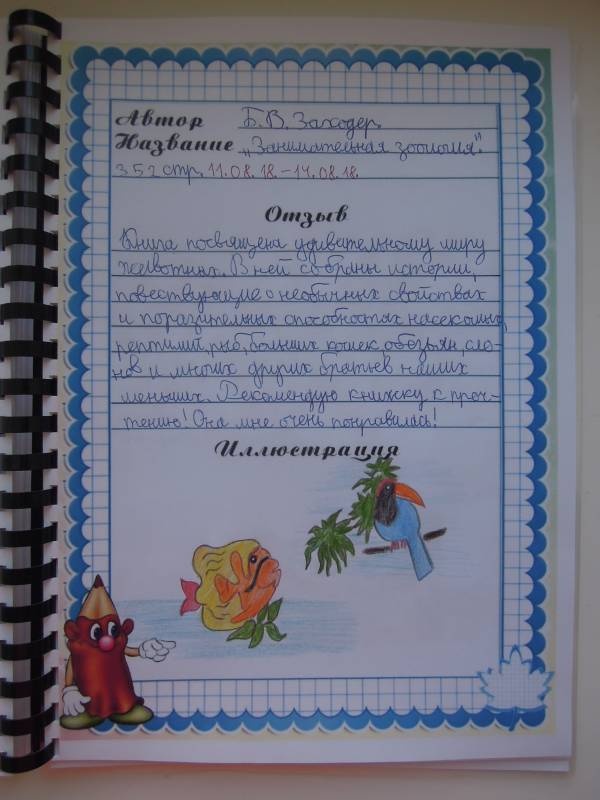 Автор Б.В. Заходер.
Название „Занимательная зоология".
352 стр. 11.08.18.-14.08.18.
Отзыв
Книга посвящена удивительному миру
животных. В ней собраны истории,
повествующие о необычных свойствах
и поразительных способностях насекомых,
рептилий, рыб, больших кошек, обезьян, сло-
нов и многих других братьев наших
меньших. Рекомендую книжку к проч-
тению! Она мне очень понравилась!
Иллюстрация